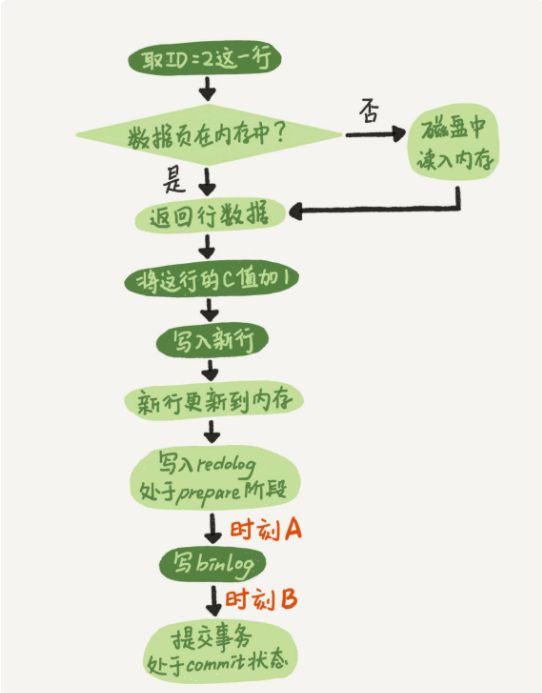 取ID=2这一行
数据页在内存中?
否
磁盘中
读入内存
是
返回行数据
将这行的C值加1
写入新行
新行更新到内存
写入redolog
处于prepare阶段
时刻A
写binlog
时刻B
提交事务
处于commit状态